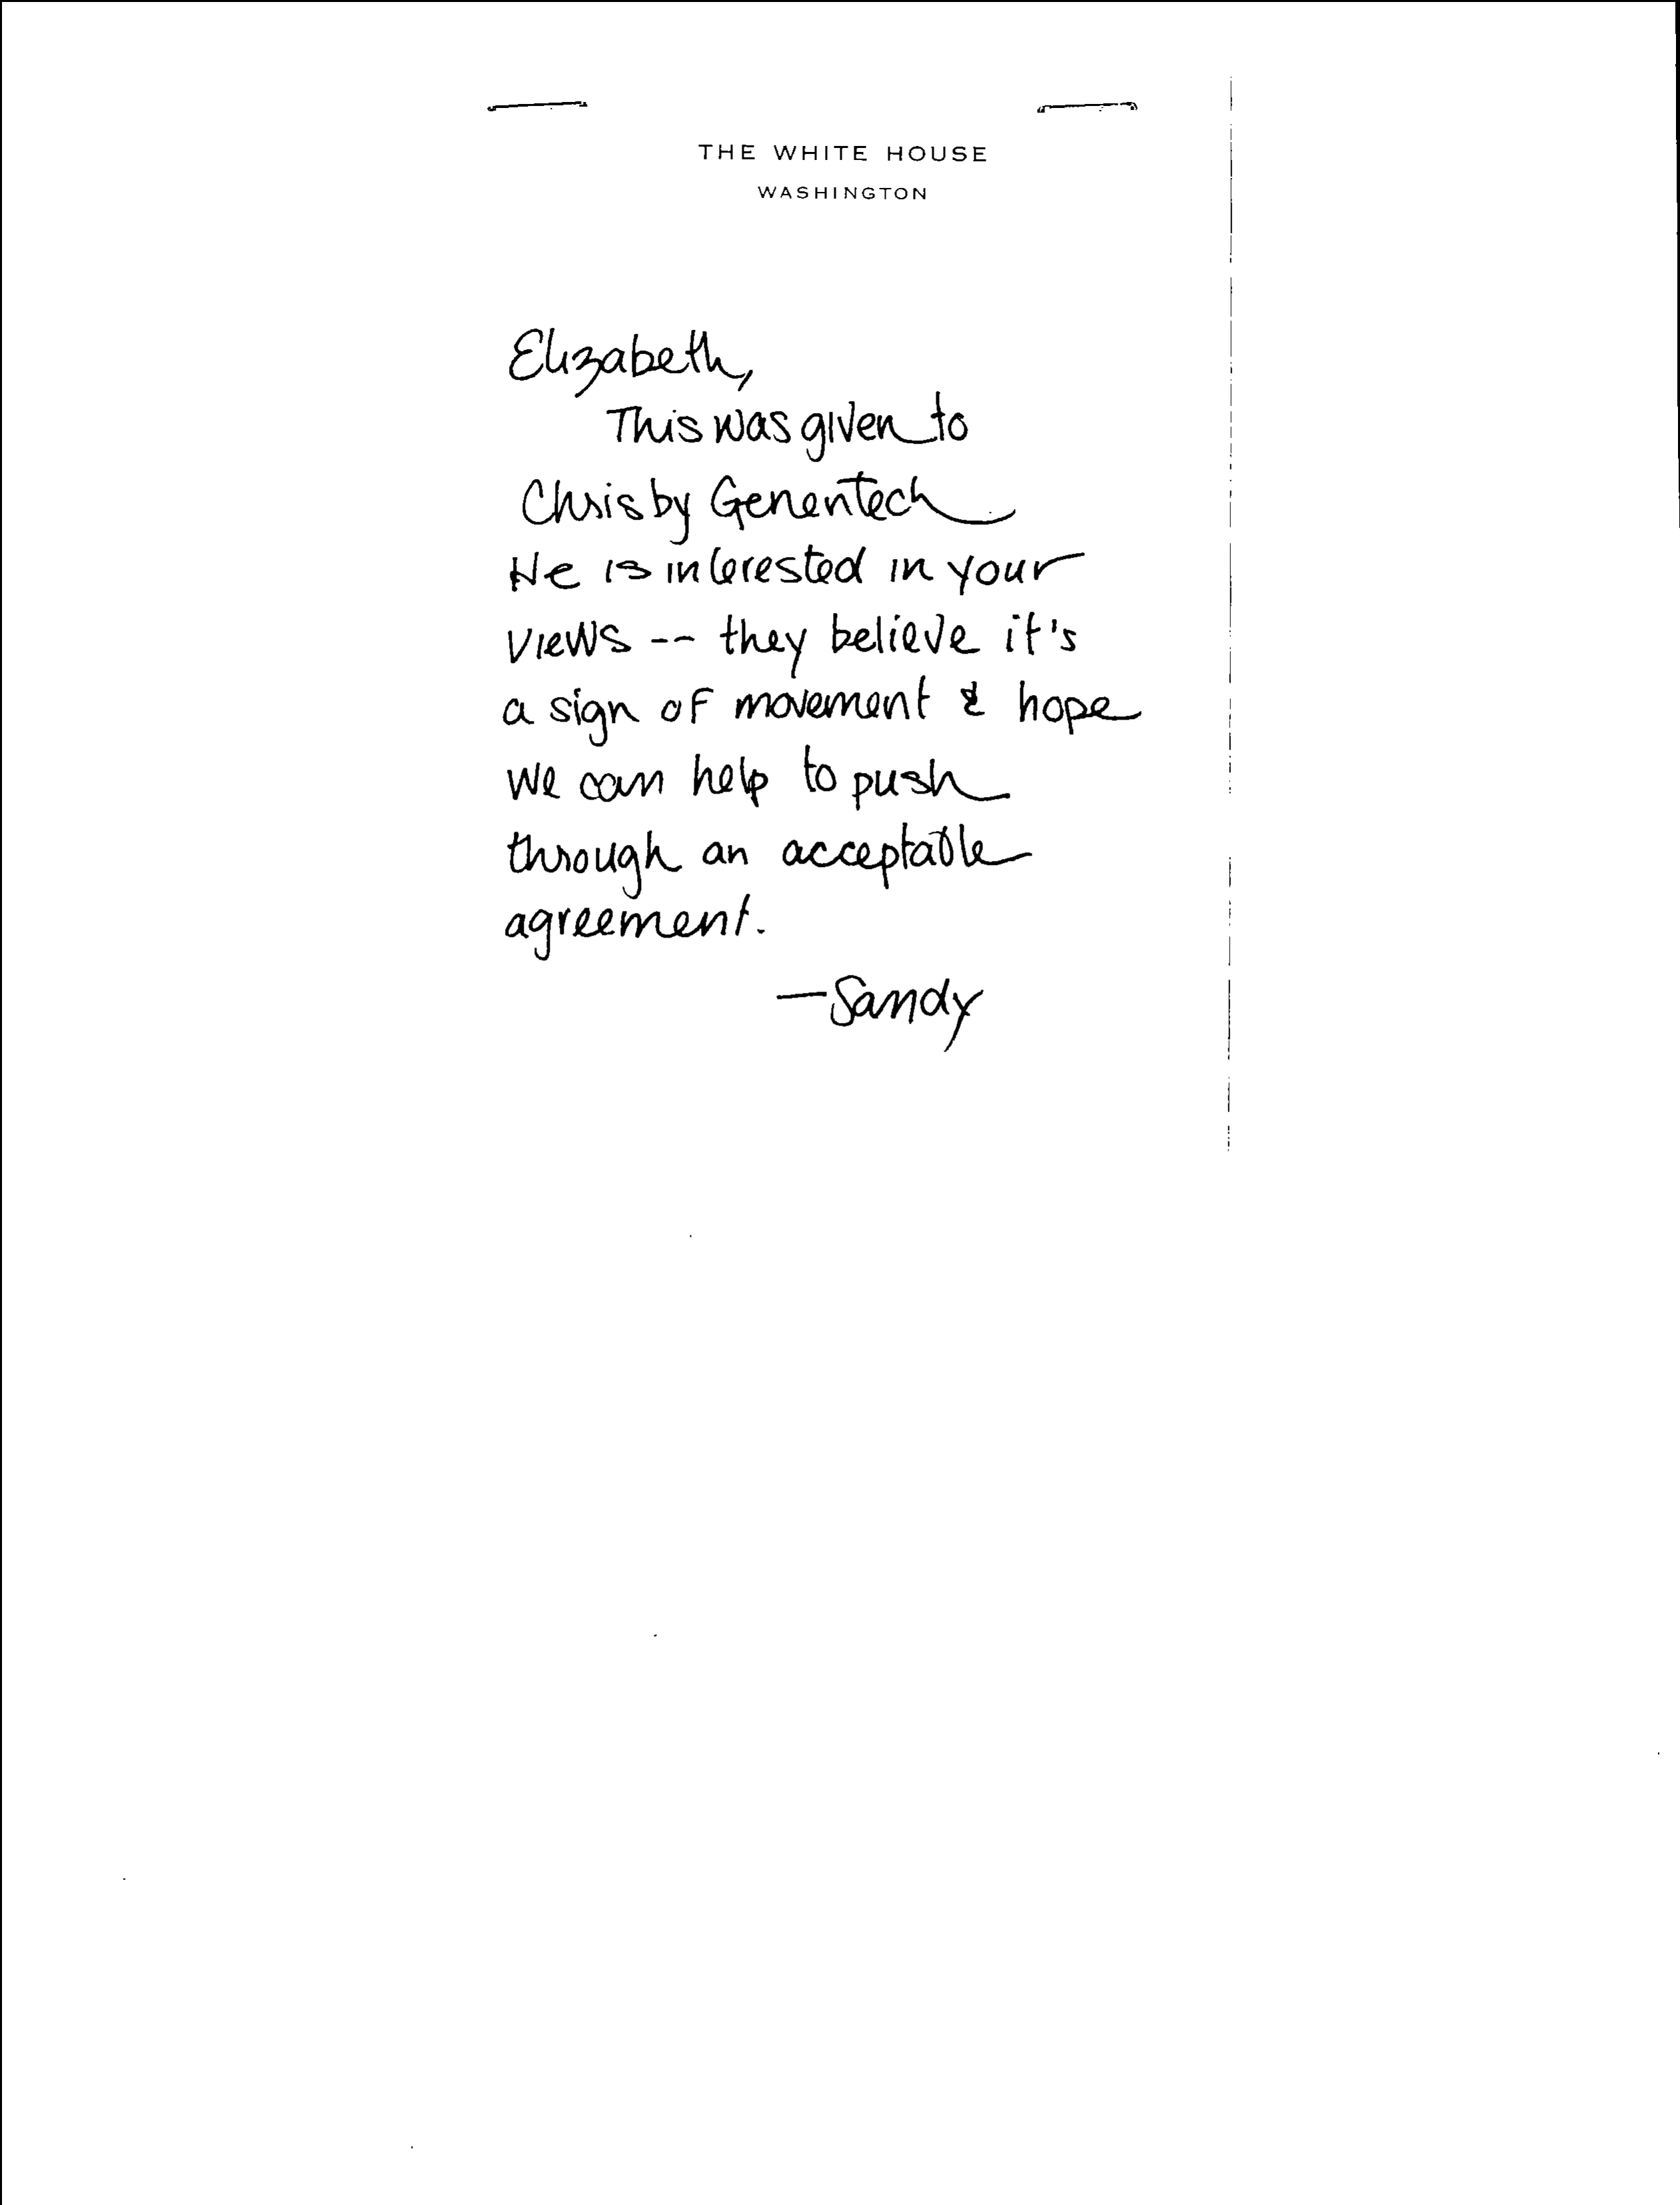 THE WHITE HOUSE
WASHINGTON
Elizabeth,
This was given to
Chris by Genentech
He is interested in your
views -- they believe it's
a sign of movement & hope
we can help to push
through an acceptable
agreement.
—Sandy